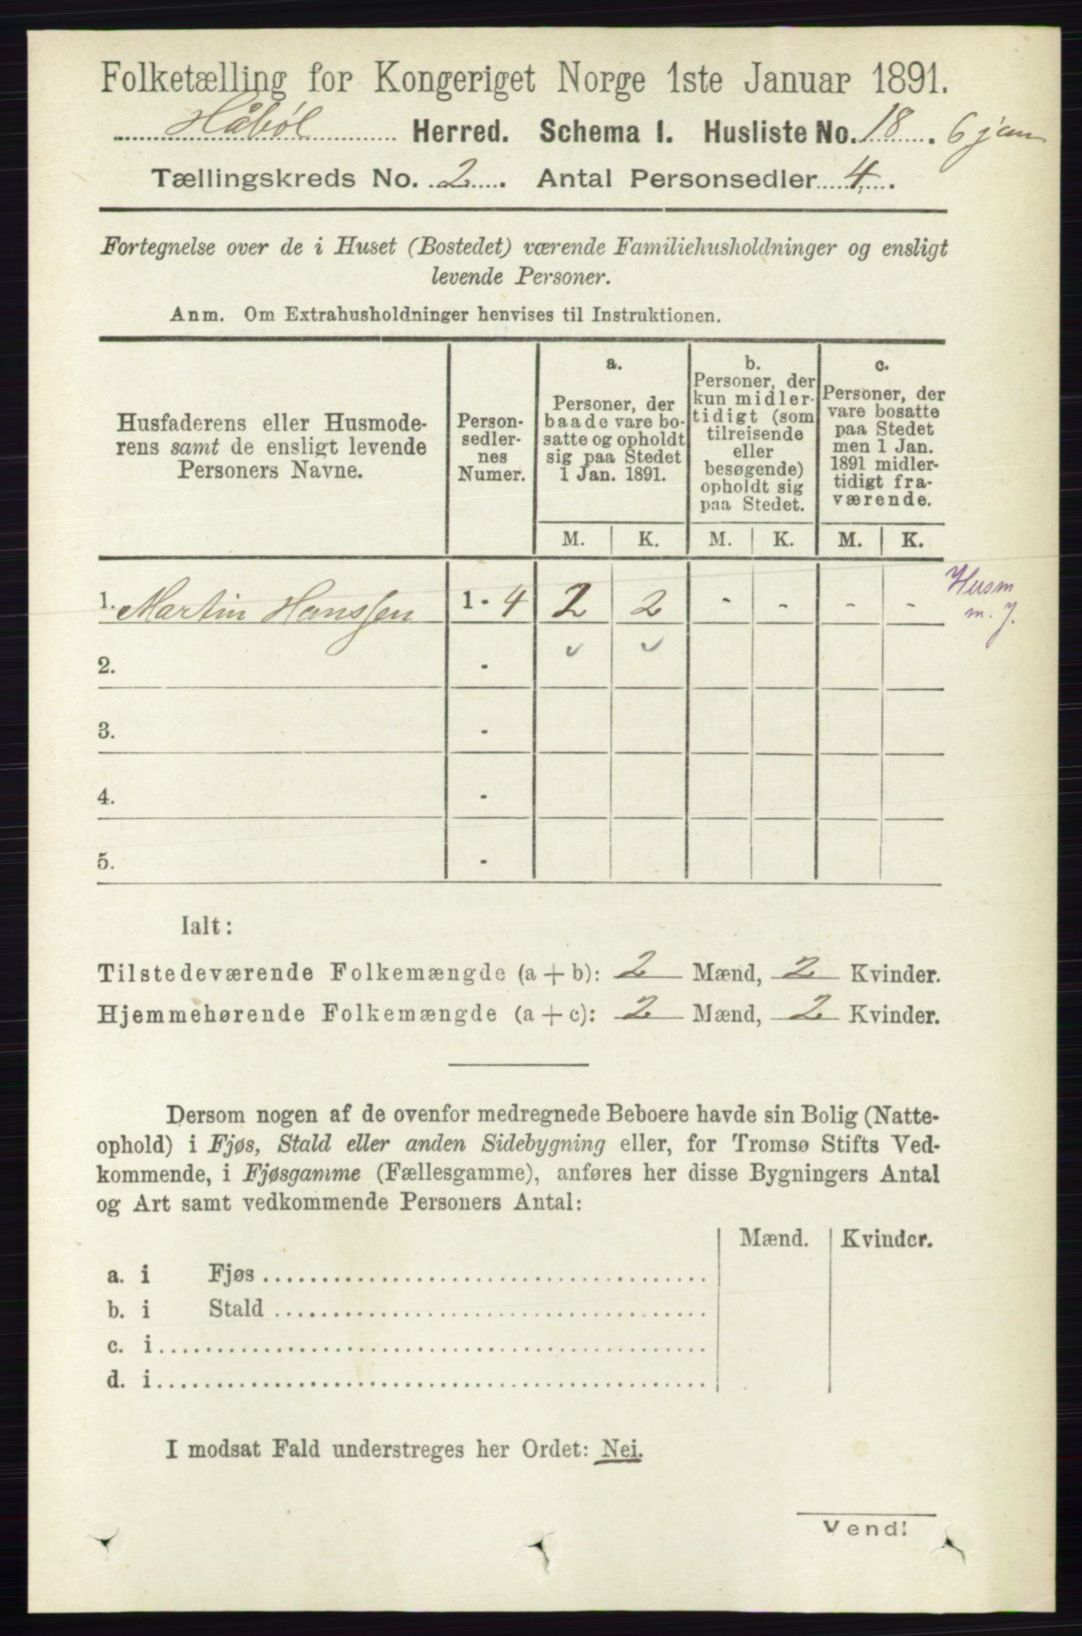 Folketælling for Kongeriget Norge 1ste Januar 1891.
Håbøl Herred. Schema I. Husliste No. 18. 6 jan
Tællingskreds No. 2. Antal Personsedler 4.
Fortegnelse over de i Huset (Bostedet) værende Familiehusholdninger og ensligt
levende Personer.
Anm. Om Extrahusholdninger henvises til Instruktionen.
Husfaderens eller Husmode-
rens samt de ensligt levende
Personers Navne.
Person-
sedler-
nes
Numer.
a.
Personer, der
baade vare bo-
satte og opholdt
sig paa Stedet
1 Jan. 1891.
b.
Personer, der
kun midler-
tidigt (som
tilreisende
eller
besøgende)
opholdt sig
paa Stedet.
c.
Personer, der
vare bosatte
paa Stedet
men 1 Jan.
1891 midler-
tidigt fra-
værende.
M. K. M. K. M. K.
1. Martin Hanssen 1 - 4 2 2 - - - - Husm
m. J.
2. - ✓ ✓
3. -
4. -
5. -
Ialt:
Tilstedeværende Folkemængde (a + b): 2 Mænd, 2 Kvinder.
Hjemmehørende Folkemængde (a + c): 2 Mænd, 2 Kvinder.
Dersom nogen af de ovenfor medregnede Beboere havde sin Bolig (Natte-
ophold) i Fjøs, Stald eller anden Sidebygning eller, for Tromsø Stifts Ved-
kommende, i Fjøsgamme (Fællesgamme), anføres her disse Bygningers Antal
og Art samt vedkommende Personers Antal:
Mænd. Kvinder.
a. i Fjøs
b. i Stald
c. i
d. i
I modsat Fald understreges her Ordet: Nei.
Vend!